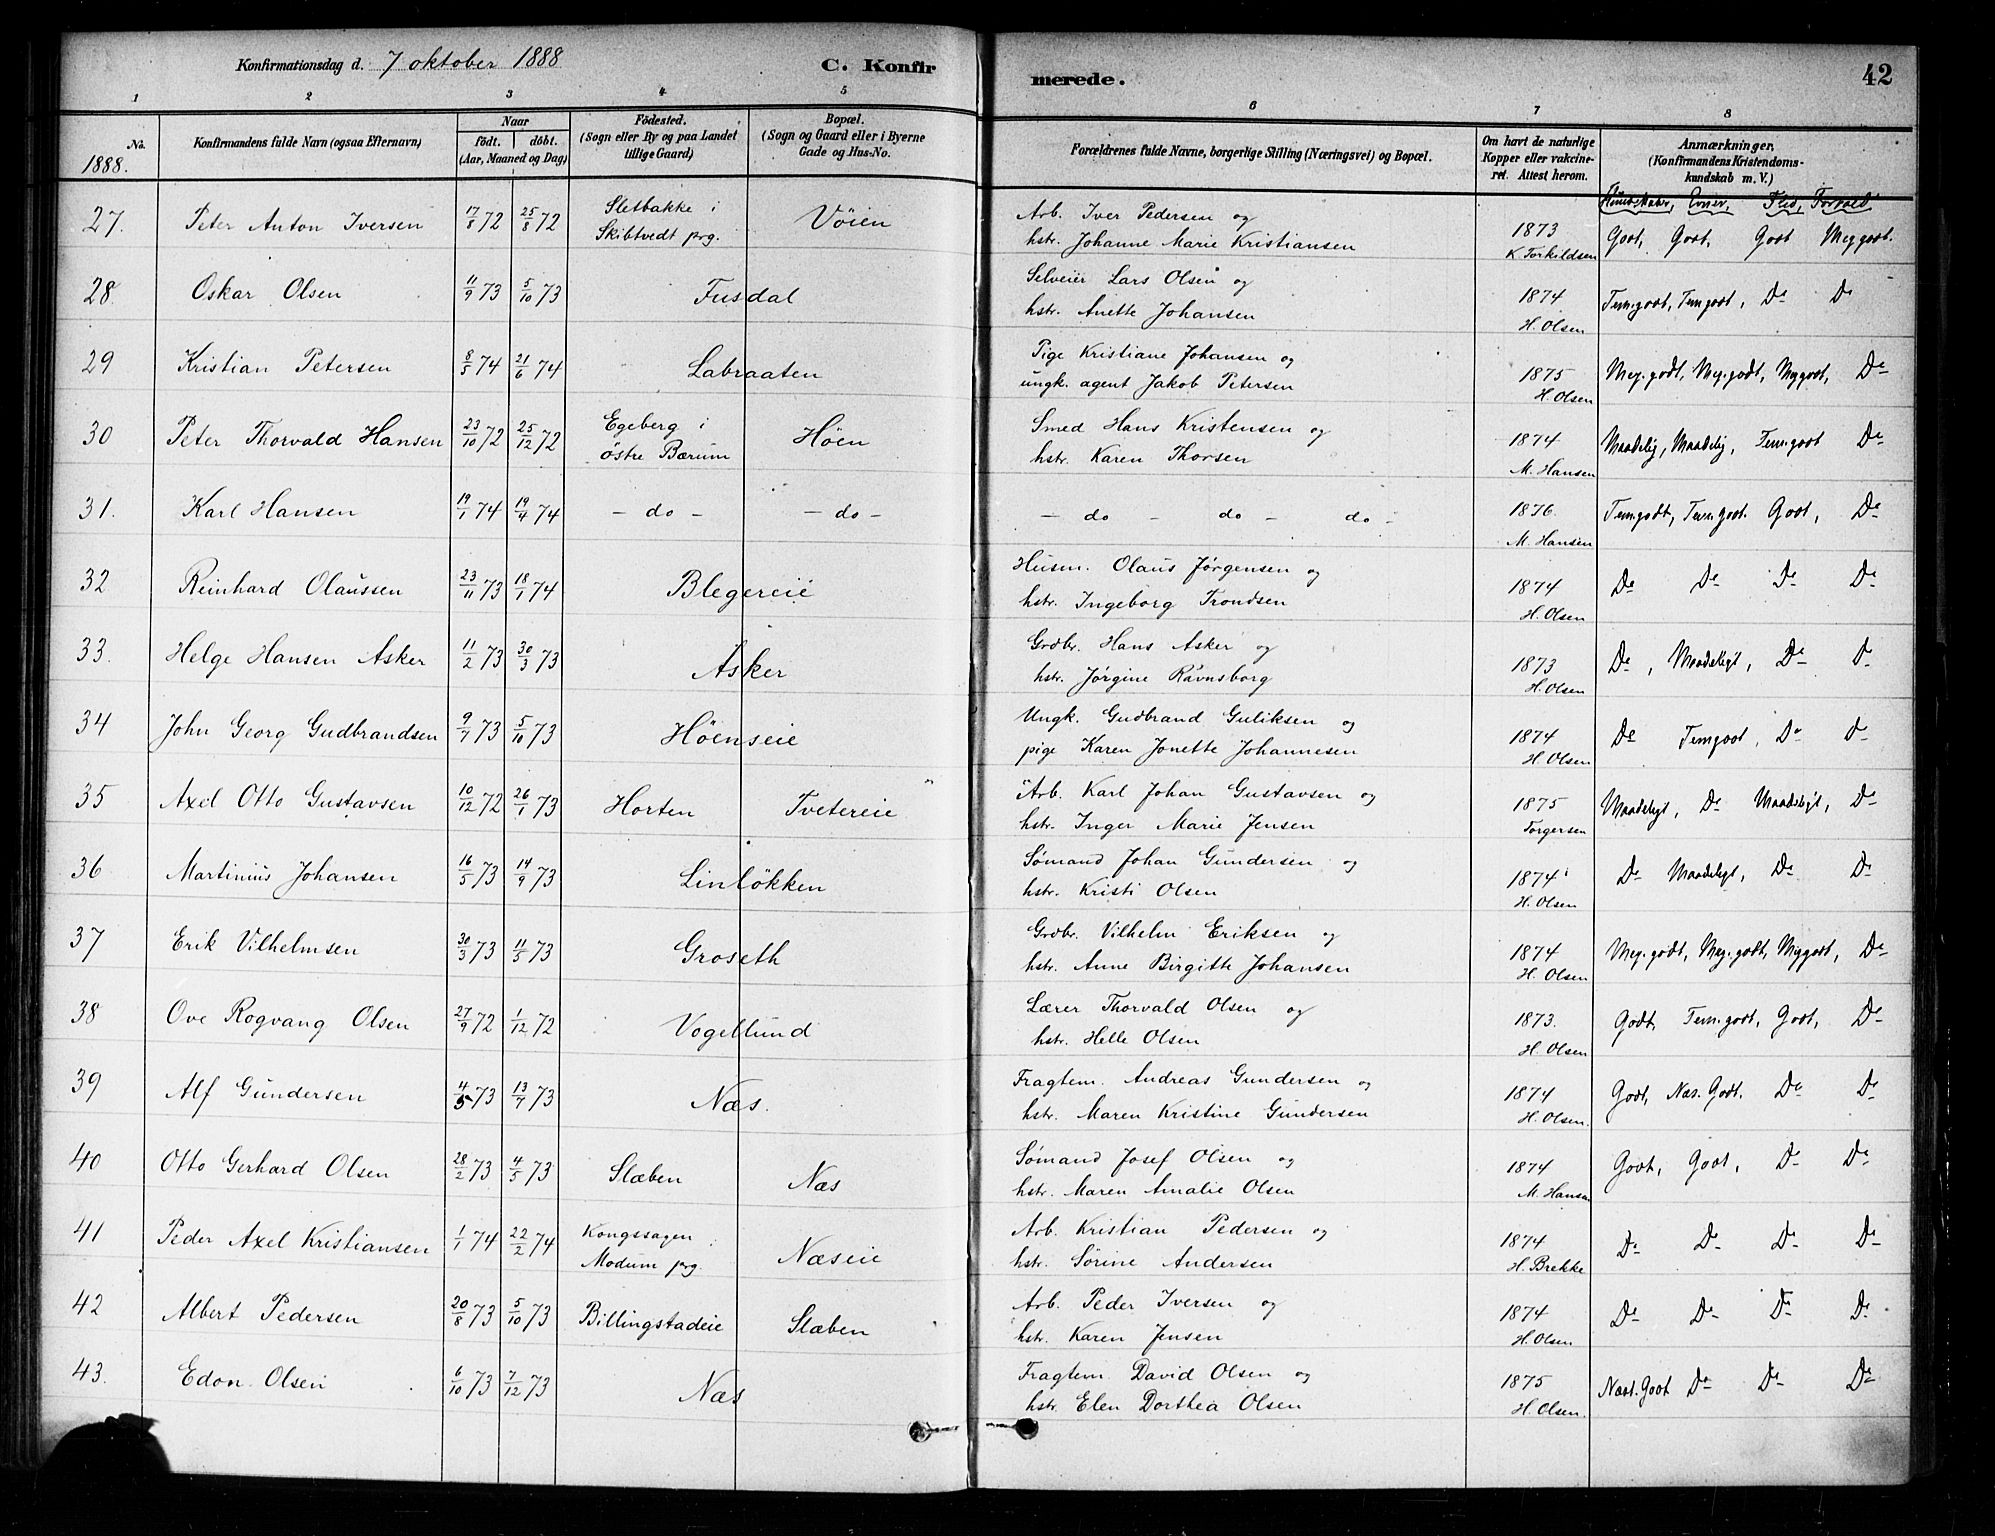 Konfirmationsdag d. 7 oktober 1888 C. Konfir merede. 42
1 2 3 4 5 6 7 8
No. 1888. Konfirmandens fulde Navn (ogsaa Efternavn) Naar født. døbt. (Aar, Maaned og Dag) Fødested. (Sogn eller By og paa Landet tillige Gaard) Bopæl. (Sogn og Gaard eller i Byerne Gade og Hus-No. Forældrenes fulde Navne, borgerlige Stilling (Næringsvei) og Bopæl. Om havt de naturlige Kopper eller vakcineret. Attest herom. Anmærkninger. (Konfirmandens Kristendomskundskab m. V.)
Evner, Flid, Forhold
27. Peter Anton Iversen 17/8 72 25/8 72 Sletbakke i Skibtvedt prg. Vöien Arb. Iver Pedersen og
hstr. Johanne Marie Kristiansen 1873 K Torkildsen Godt, Godt, Godt Meg godt.
28. Oskar Olsen 11/9 73 5/10 73 Fusdal Selveier Lars Olsen og
hstr. Anette Johansen 1874 H. Olsen Tem. godt, Tem godt, Do Do
29 Kristian Petersen 8/5 74 21/6 74 Labraaten Pige Kristiane Johansen og
ungk. agent Jakob Petersen 1875 H. Olsen Meg. godt, Meg. godt, Meg godt, Do
30 Peter Thorvald Hansen 23/10 72 25/12 72 Egeberg i östre Bærum Höen Smed Hans Kristensen og
hstr. Karen Thorsen 1874 M. Hansen Maadelig, Maadelig, Tem. godt Do
31. Karl Hansen 19/1 74 19/4 74 - do - - do - - do - do - do -
1876. M. Hansen Tem. godt, Tem. godt. Godt, Do
32 Reinhard Olaussen 23/11 73 18/1 74 Blegereie Husm. Olaus Jørgensen og
hstr. Ingeborg Trondsen 1874 H. Olsen Do Do Do Do
33. Helge Hansen Asker 11/2 73 30/3 73 Asker Grdbr. Hans Asker og
hstr. Jørgine Ravnsborg 1873 H. Olsen Do, Maadeligt, Do Do
34 John Georg Gudbrandsen 9/7 73 5/10 73 Höenseie Ungk. Gudbrand Guliksen og
pige Karen Jonette Johannesen 1874 H. Olsen Do Tem godt, Do Do
35 Axel Otto Gustavsen 10/12 72 26/1 73 Horten Tvetereie Arb. Karl Johan Gustavsen og
hstr. Inger Marie Jensen 1875 Torgersen Maadeligt, Do Maadeligt, Do
36 Martinius Johansen 16/5 73 14/9 73 Linlökken Sømand Johan Gundersen og
hstr. Kristi Olsen 1874 H. Olsen Do Maadeligt, Do Do
37 Erik Vilhelmsen 30/3 73 11/5 73 Groseth Grdbr. Vilhelm Eriksen og
hstr. Anne Birgitte Johansen 1874 H. Olsen Meg. godt, Meg. godt, Meg godt, Do
38 Ove Rogvang Olsen 27/9 72 1/12 72 Vogellund Lærer Thorvald Olsen og
hstr. Helle Olsen 1873. H. Olsen Godt, Tem. godt, Godt, Do
39 Alf Gundersen 4/5 73 13/7 73 Næs. Fragtem. Andreas Gundersen og
hstr. Maren Kristine Gundersen 1874 H. Olsen. Godt, Næs. Godt. Do Do
40 Otto Gerhard Olsen 28/2 73 4/5 73 Slæben Næs Sømand Josef Olsen og
hstr. Maren Amalie Olsen 1874 M. Hansen Godt, Godt, Do Do
41 Peder Axel Kristiansen 1/1 74 22/2 74 Kongssagen i Modum prg. Næseie Arb. Kristian Pedersen og
hstr. Sørine Andersen 1874 H. Brekke Do Do Do Do
42 Albert Pedersen 20/8 73 5/10 73 Billingstadeie Slæben Arb. Peder Iversen og
hstr. Karen Jensen 1874 H. Olsen Do Do Do Do
43. Edon Olsen 6/10 73 7/12 73 Næs Fragtem. David Olsen og
hstr. Elen Dorthea Olsen 1875 H. Olsen. Næst. Godt Do Do Do